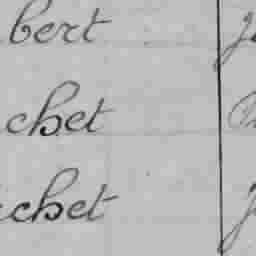 bert
chet
chet